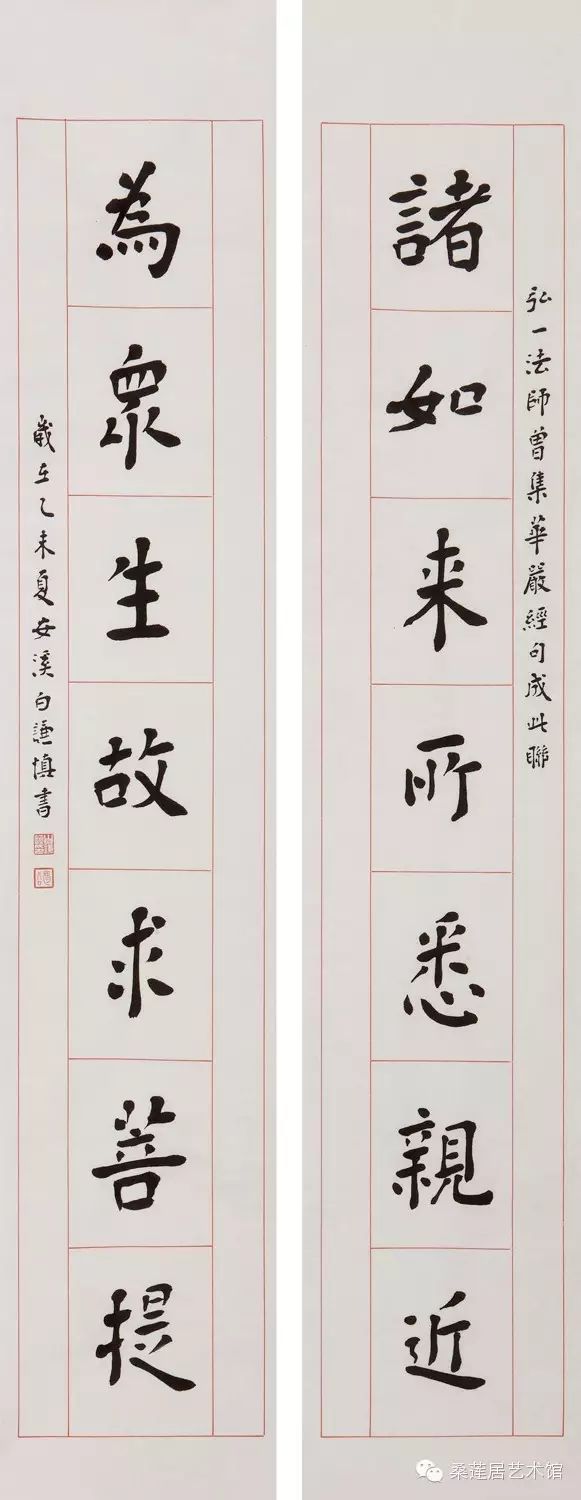 弘一法師曾集華嚴經句成此聯
諸如来所悉親近
為眾生故求菩提
歲在乙未夏安溪白謙慎書
桑莲居艺术馆